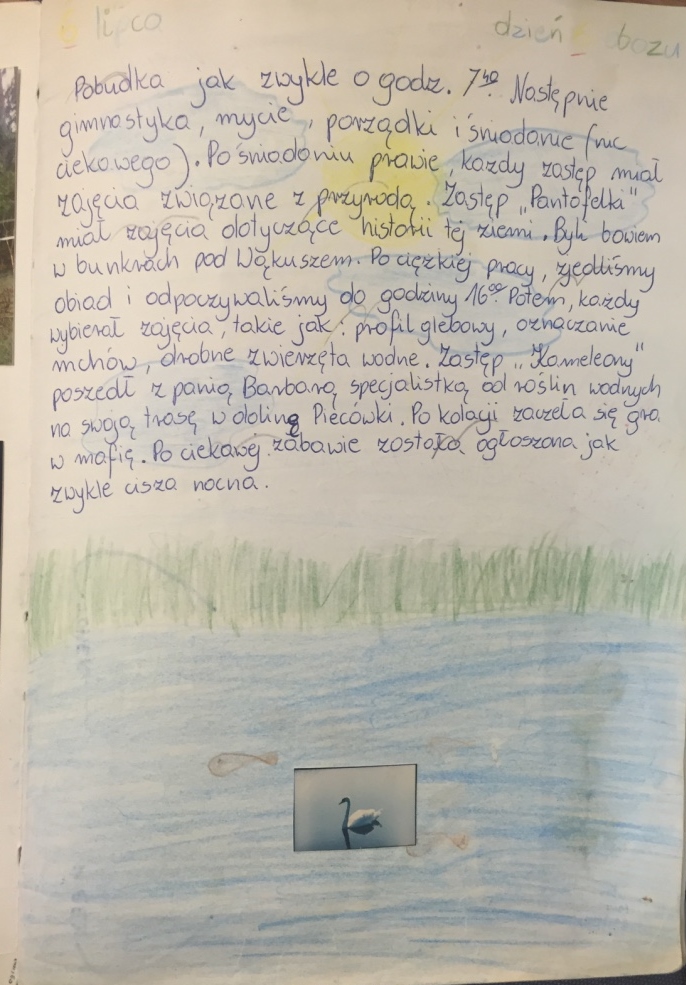 6 lipca dzień obozu
Pobudka jak zwykle o godz. 7⁴⁰. Następnie
gimnastyka, mycie, porządki i śniadanie (nic
ciekawego). Po śniadaniu prawie, każdy zastęp miał
zajęcia związane z przyrodą. Zastęp „Pantofelki"
miał zajęcia dotyczące historii tej ziemi. Byli bowiem
w bunkrach pod Wąkuszem. Po ciężkiej pracy, zjedliśmy
obiad i odpoczywaliśmy do godziny 16⁰⁰. Potem, każdy
wybierał zajęcia, takie jak: profil glebowy, oznaczanie
mchów, drobne zwierzęta wodne. Zastęp „Kameleony"
poszedł z panią Barbarą specjalistką od roślin wodnych
na swoją trasę w dolinę Piecówki. Po kolacji zaczęła się gra
w mafię. Po ciekawej zabawie została ogłoszona jak
zwykle cisza nocna.